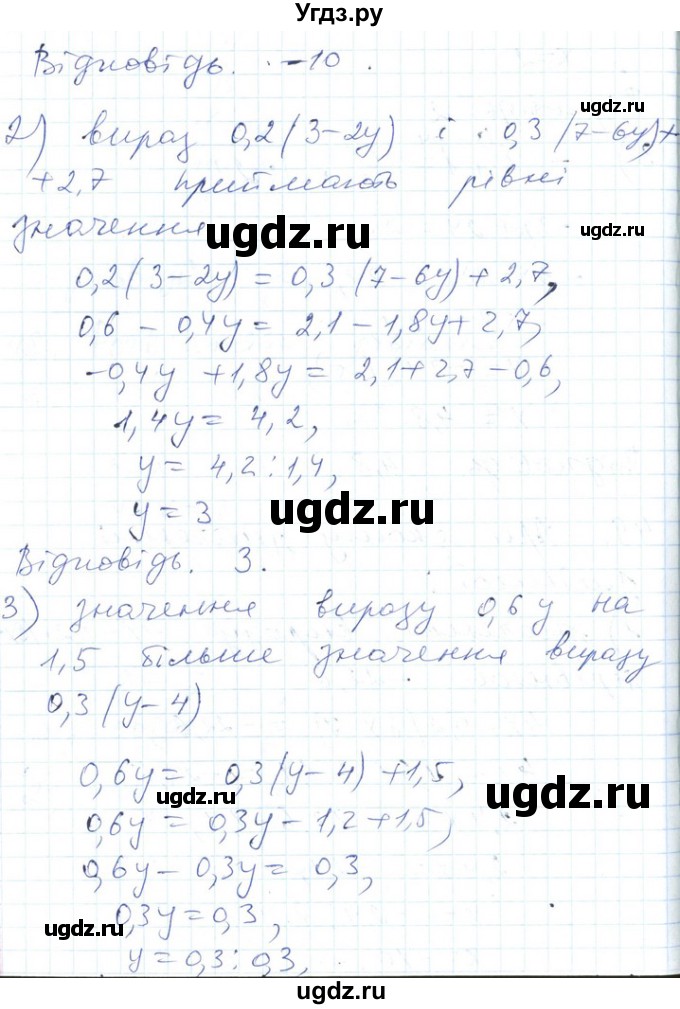 Угдз.ру
Відповідь. -10.
ugdz.ru
2) вираз 0,2(3-2y) і 0,3(7-6y)+
+2,7 приймають рівні
ugdz.ru
значення
ugdz.ru
0,2(3-2y) = 0,3(7-6y)+2,7,
0,6 - 0,4y = 2,1 - 1,8y + 2,7,
-0,4y + 1,8y = 2,1+2,7-0,6,
1,4y = 4,2,
y = 4,2:1,4,
y = 3
ugdz.ru
Відповідь. 3.
3) значення виразу 0,6y на
1,5 більше значення виразу
0,3(y-4)
0,6y = 0,3(y-4)+1,5,
ugdz.ru
ugdz.ru
0,6y = 0,3y-1,2+1,5,
0,6y - 0,3y = 0,3,
0,3y = 0,3,
ugdz.ru
y = 0,3:0,3,
ugdz.ru